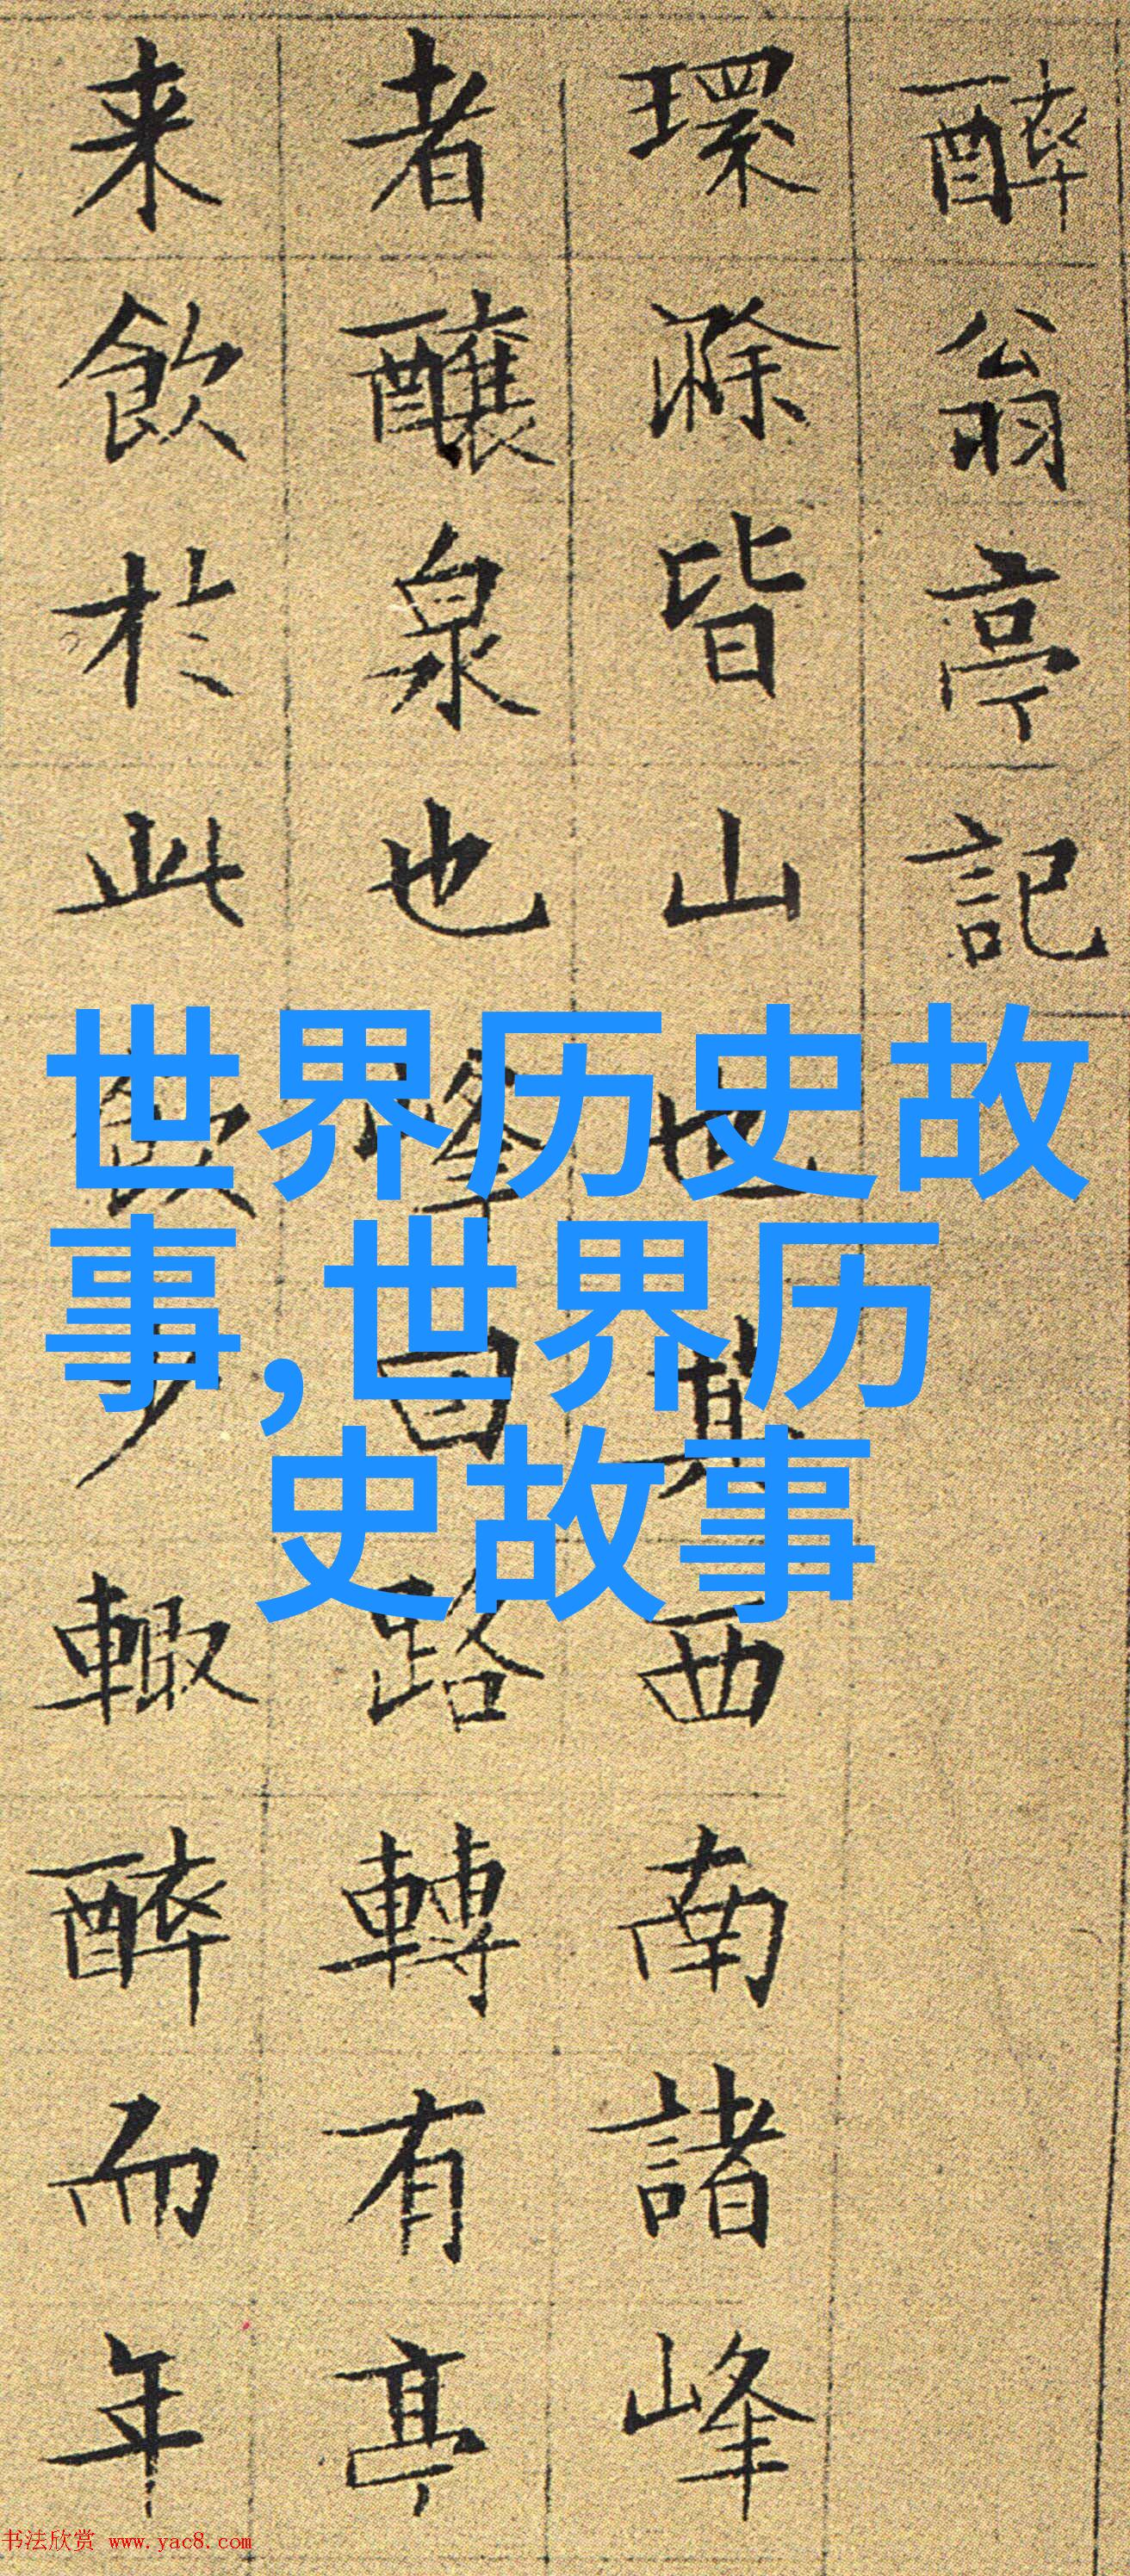 醉翁亭記
環滁皆山也其西南諸峰
者釀泉也峰回路轉有亭
来飲於此飲少輒醉而年
世界历史故
事,世界历
史故事
书法欣赏 www.yac8.com